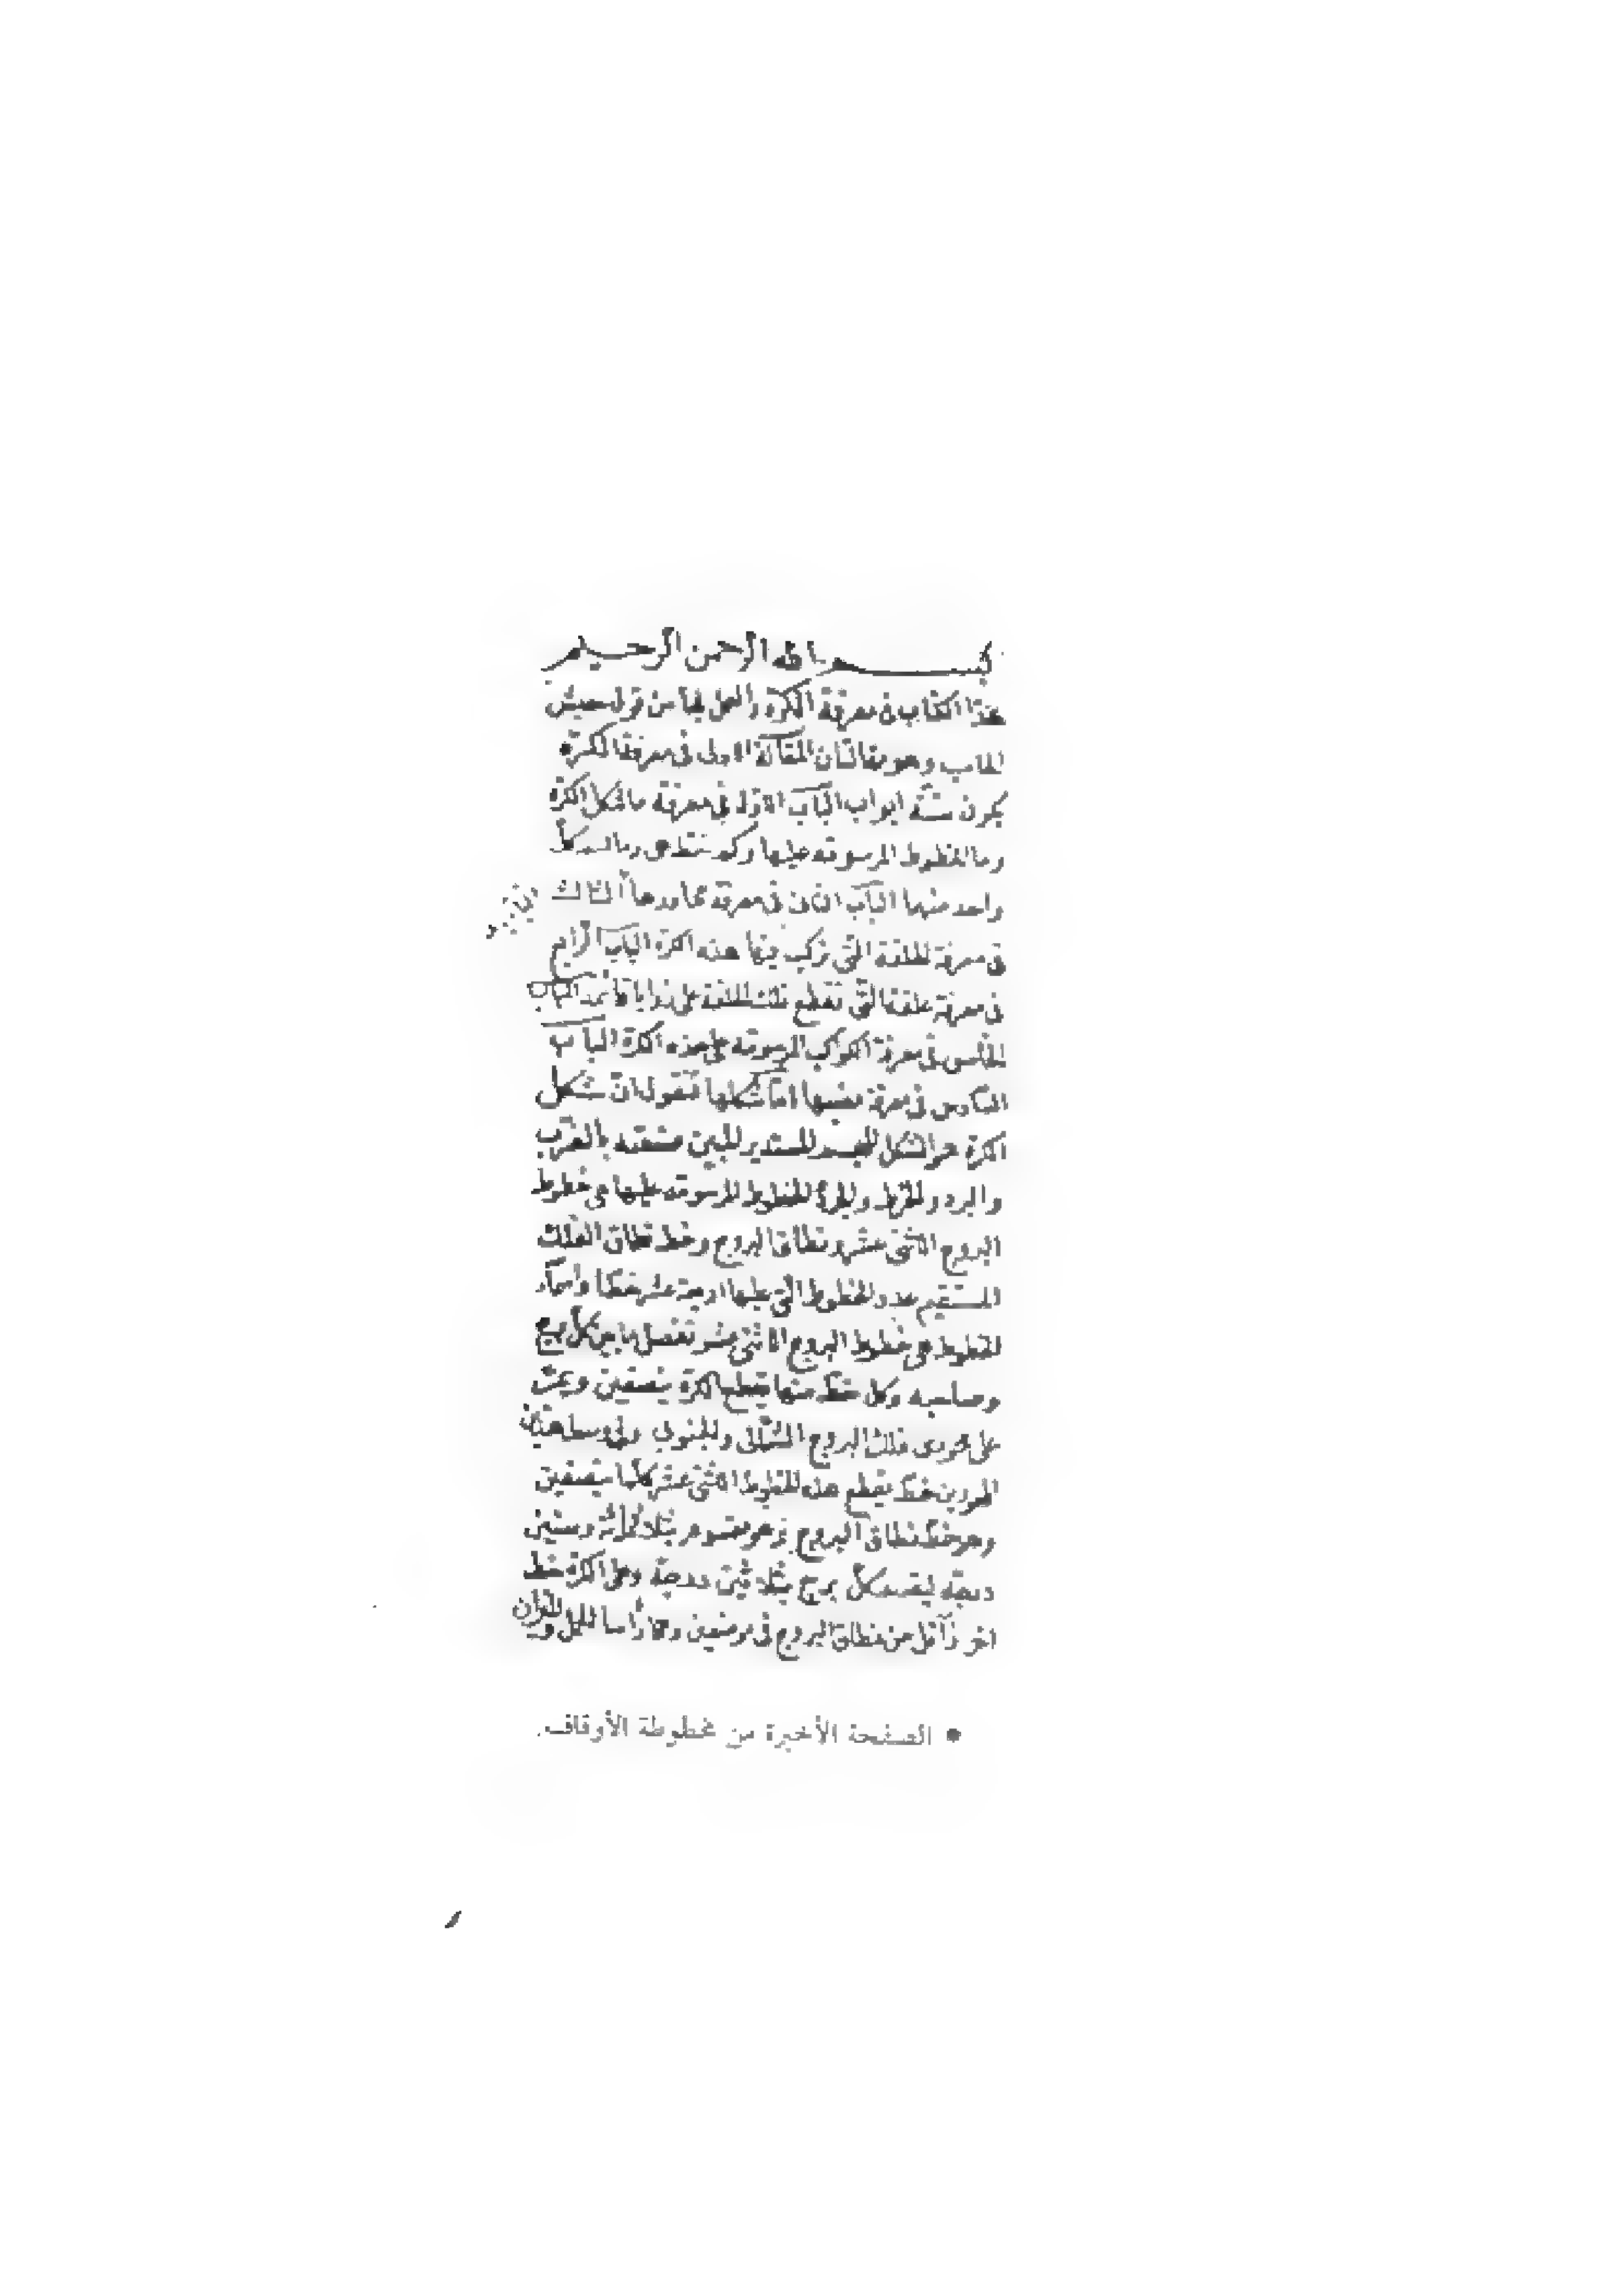 بسم الله الرحمن الرحيم
هذا الكتاب في معرفة الكرة والعمل بها من قول حبش
الحاسب وهو مقالتان المقالة الاولى في معرفة الكرة
يكون ستة ابواب الباب الاول في معرفة ما شكل الكرة
وما الخطوط المرسومة عليها وكم خط هي وما اسم كل
واحد منها الباب الثاني في معرفة محاورها الثالث
في معرفة الحلقة التي تركب فيها هذه الكرة الباب الرابع
في معرفة حلقتها التي تقطع تلك الحلقة على زوايا قائمة الباب
الخامس في معرفة الكواكب المرسومة على هذه الكرة الباب
السادس في معرفة اما شكلها فنقول ان شكل
الكرة هو الشكل المجسد المستدير
المرسومة عليها هي خطوط
البروج الاثنى عشر ونطاق البروج وخط نطاق الفلك
المستقيم عدد الخطوط التي عليها اربعة عشر خطا واسماء
الخطوط هي خطوط البروج الاثنى عشر تفصل ما بين كل برج
وصاحبه وكل خط منها يقطع الكرة بنصفين وتمر
على محورى فلك البروج الشمالى والجنوبى وفى وسط
المحورين خط يقطع هذه الخطوط الاثنى عشر كلها بنصفين
وهو خط نطاق البروج وهو مقسوم بثلاثمائة وستين
درجة لقسم كل برج بثلاثين درجة وعلى الكرة خط
اخر اقل من نطاق البروج في موضعين وهما رأسا الحمل والميزان
• الصفحة الأخيرة من مخطوطة الأوقاف.